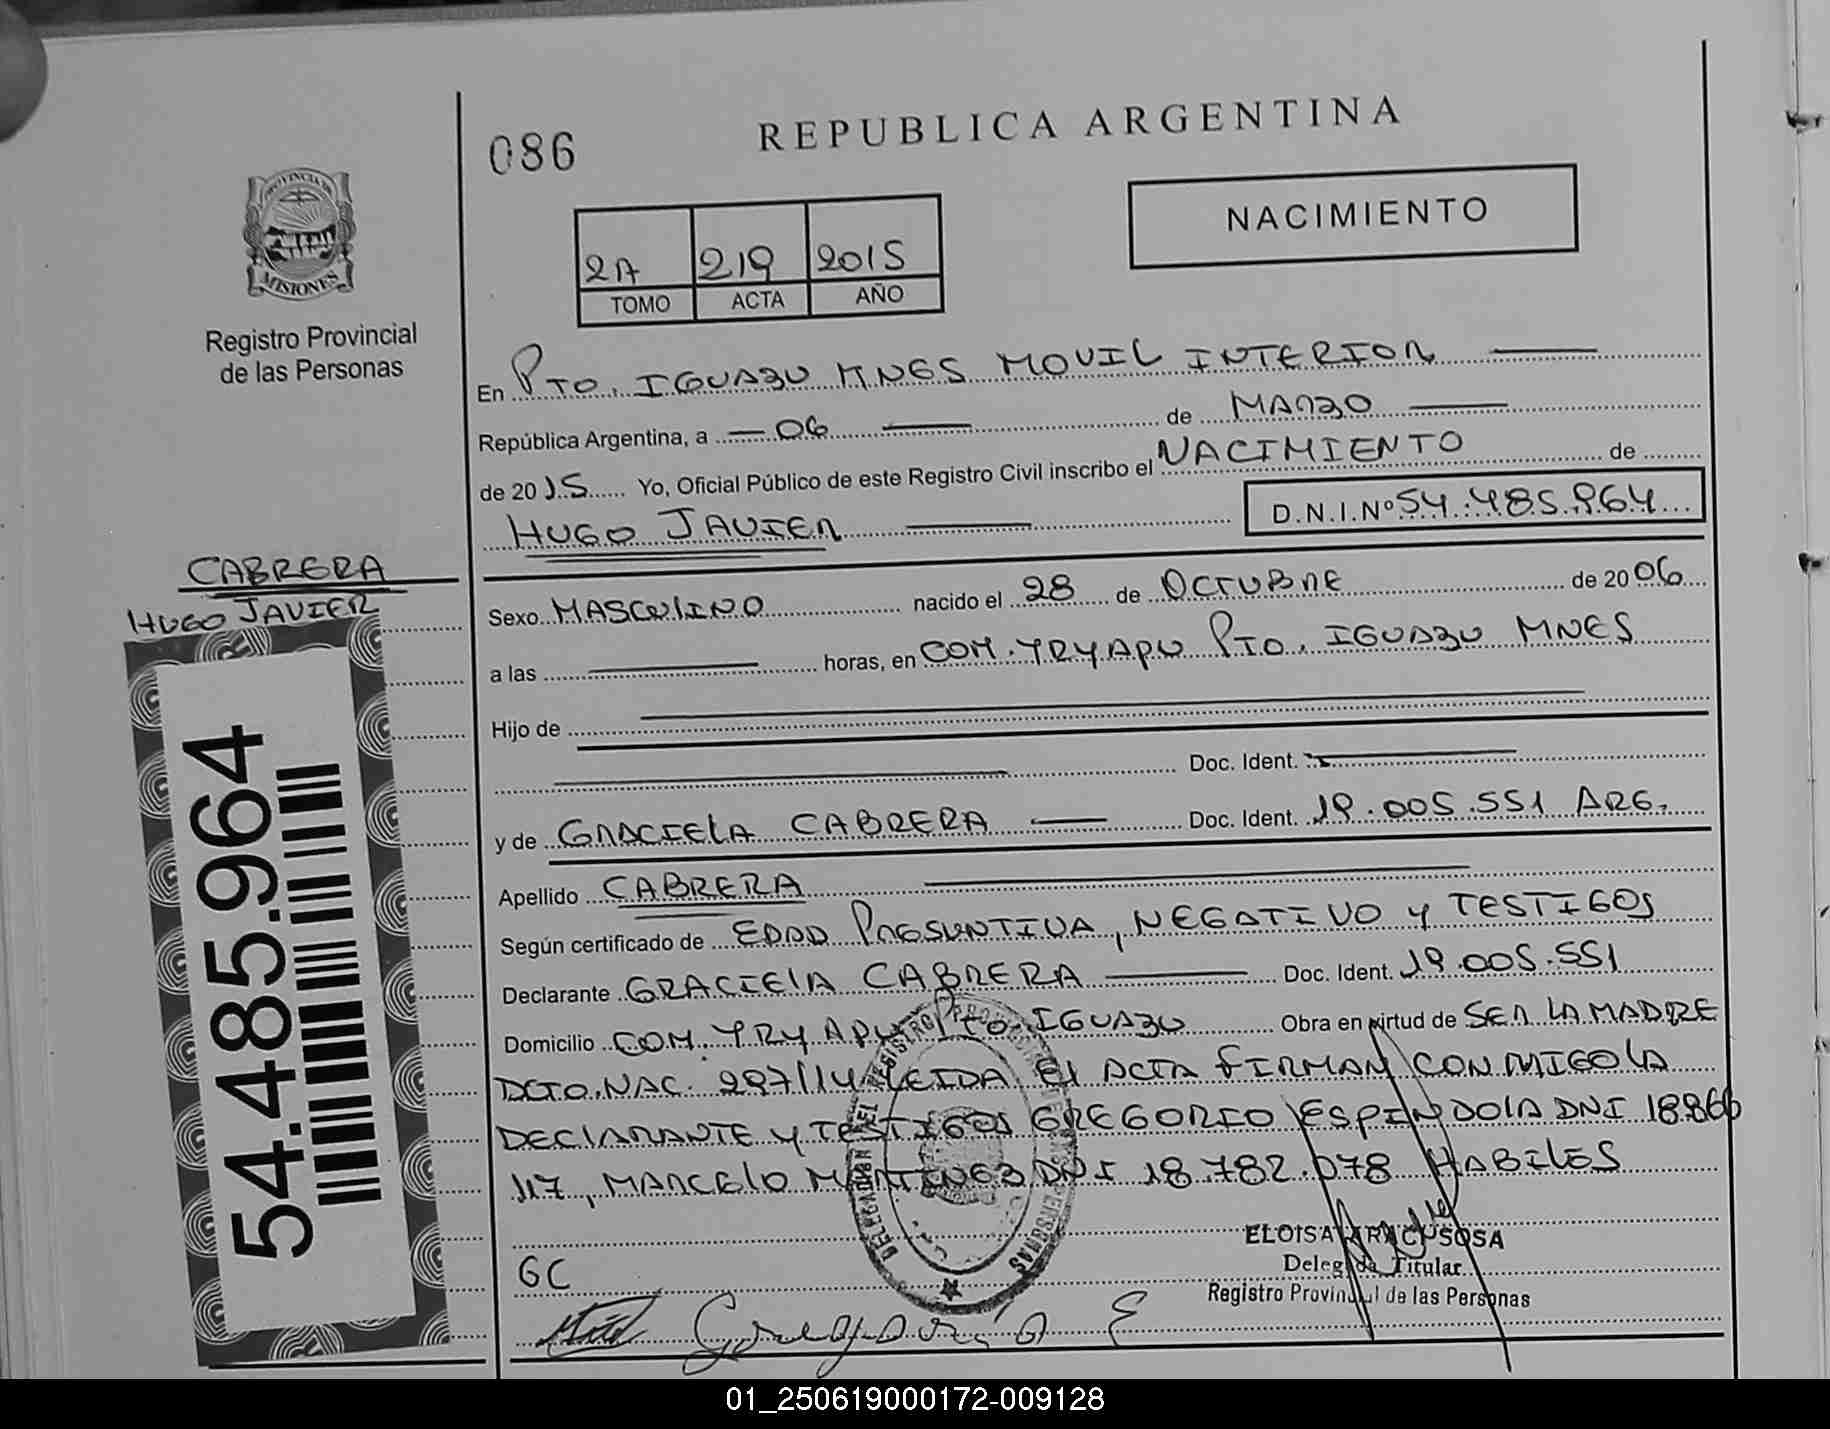 086
REPUBLICA ARGENTINA
NACIMIENTO
PROVINCIA DE
MISIONES
Registro Provincial
de las Personas
2A 219 2015
TOMO ACTA AÑO
En PTO. IGUAZU MNES MOVIL INTERIOR
República Argentina, a 06 de MARZO
de 2015 Yo, Oficial Público de este Registro Civil inscribo el NACIMIENTO de
HUGO JAVIER D.N.I.Nº 54.485.964
CABRERA
HUGO JAVIER
54.485.964
Sexo MASCULINO nacido el 28 de OCTUBRE de 2006
a las horas, en COM. YRYAPU PTO. IGUAZU MNES
Hijo de
Doc. Ident.
y de GRACIELA CABRERA Doc. Ident. 19.005.551 ARG.
Apellido CABRERA
Según certificado de EDAD PRESUNTIVA, NEGATIVO Y TESTIGOS
Declarante GRACIELA CABRERA Doc. Ident. 19.005.551
Domicilio COM. YRYAPU PTO IGUAZU Obra en virtud de SER LA MADRE
DCTO. NAC. 297/14 LEIDA El ACTA FIRMAN CON MIGO LA
DECLARANTE Y TESTIGOS GREGORIO ESPINDOLA DNI 18.866
117, MARCELO MARTINEZ DNI 18.782.078 HABILES
ELOISA ARACY SOSA
Delegada Titular
Registro Provincial de las Personas
GC
Gregorio E
01_250619000172-009128